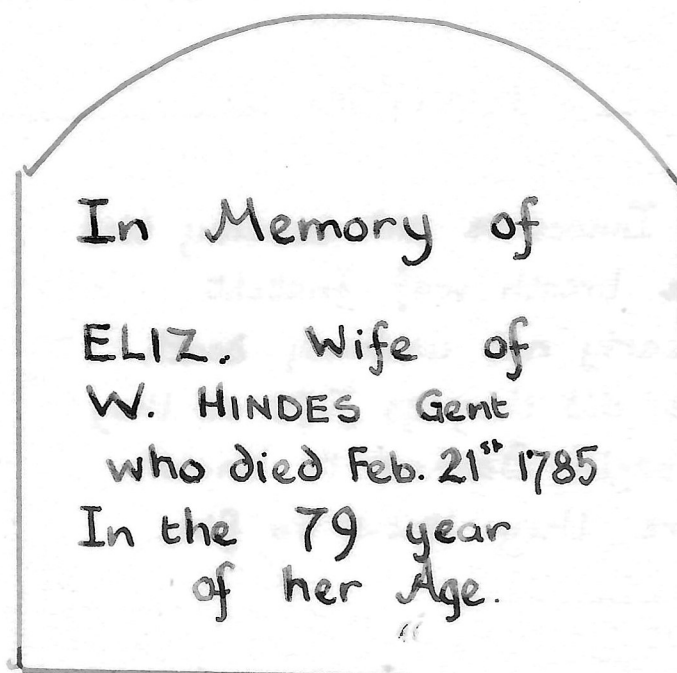 In Memory of
ELIZ. Wife of
W. HINDES Gent
who died Feb. 21st 1785
In the 79 year
of her Age.